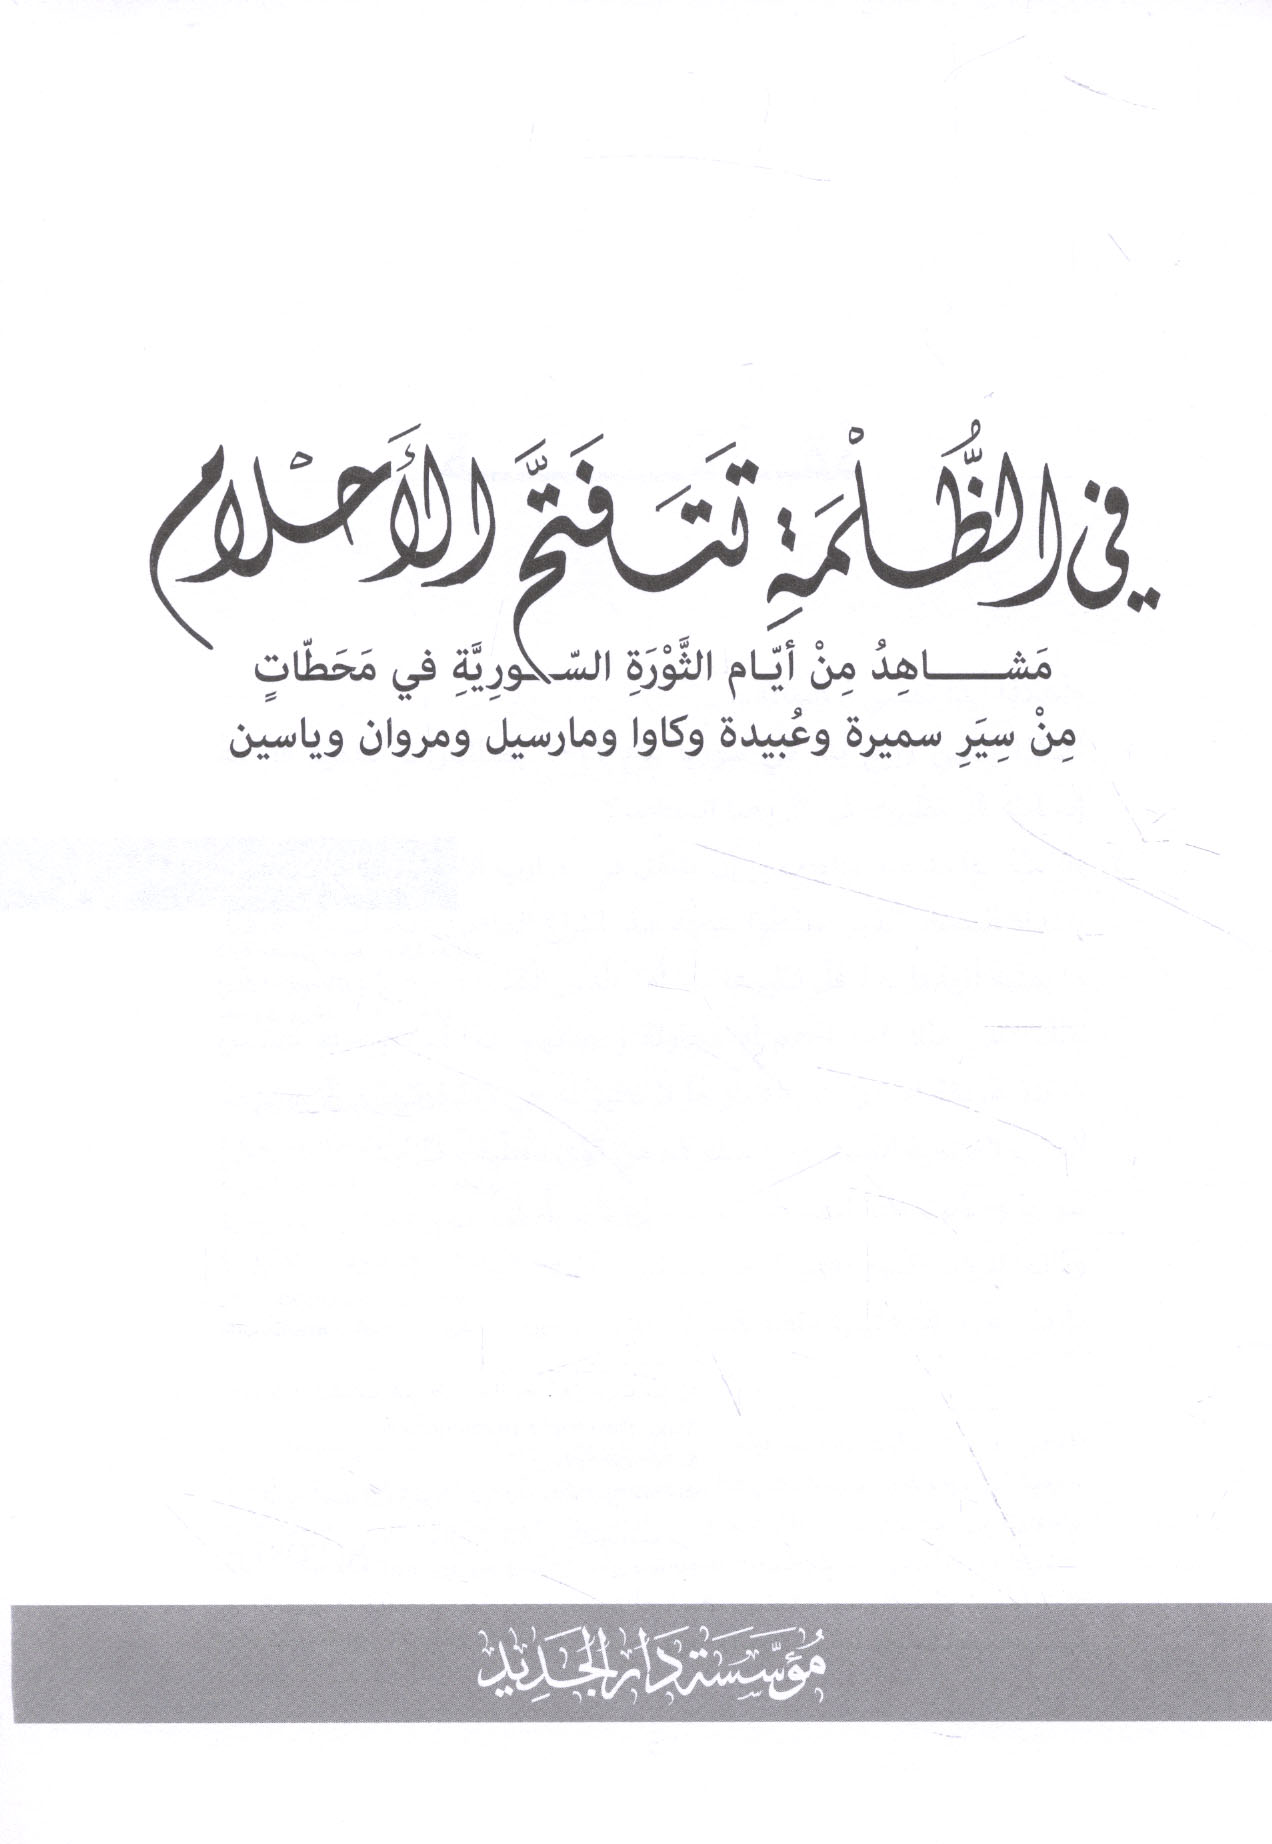 في الظُّلْمَةِ تَتَفَتَّح الأَحْلام
مَشـــــاهِدُ مِنْ أيّـام الثَّوْرَةِ السّـورِيَّةِ في مَحَطّاتٍ
مِنْ سِيَرِ سميرة وعُبيدة وكاوا ومارسيل ومروان وياسين
مُؤَسَّسَة دَار الجَدِيد